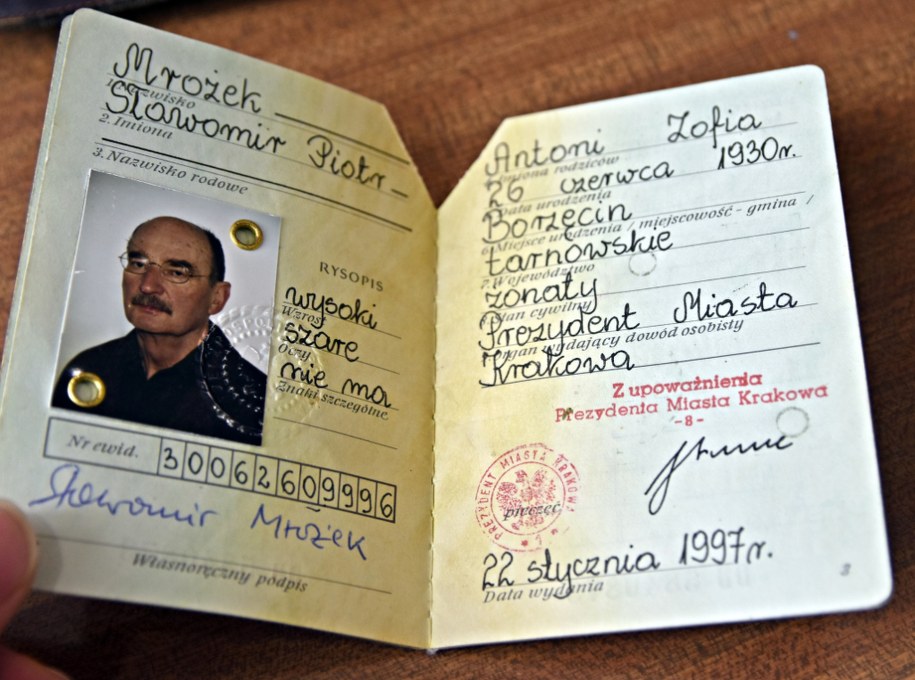 Mrożek
1. Nazwisko
Sławomir Piotr
2. Imiona
3. Nazwisko rodowe
RYSOPIS
wysoki
Wzrost
szare
Oczy
nie ma
Znaki szczególne
Nr ewid. 30062609996
Sławomir Mrożek
Własnoręczny podpis
Antoni Zofia
Imiona rodziców
26 czerwca 1930r.
Data urodzenia
Borzęcin
6. Miejsce urodzenia / miejscowość - gmina /
tarnowskie
7. Województwo
żonaty
Stan cywilny
Prezydent Miasta
Organ wydający dowód osobisty
Krakowa
Z upoważnienia
Prezydenta Miasta Krakowa
-8-
PREZYDENT MIASTA KRAKOWA
pieczęć
22 stycznia 1997r.
Data wydania
3